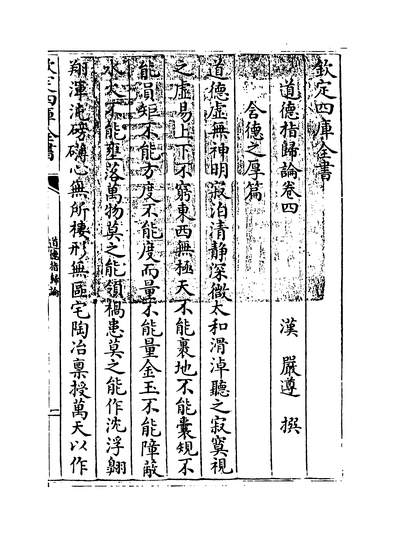 欽定四庫全書
道德指歸論卷四
漢 嚴遵 撰
含德之厚篇
道德虛無神明寂泊清靜深微太和滑淖聽之寂寞視
之虛易上下不窮東西無極天不能裹地不能囊規不
能員矩不能方度不能度而量不能量金玉不能障蔽
水火不能壅落萬物莫之能領禍患莫之能作沈浮翱
翔渾沌磅礴心無所棲形無區宅陶冶稟授萬天以作
欽定四庫全書
道德指歸論